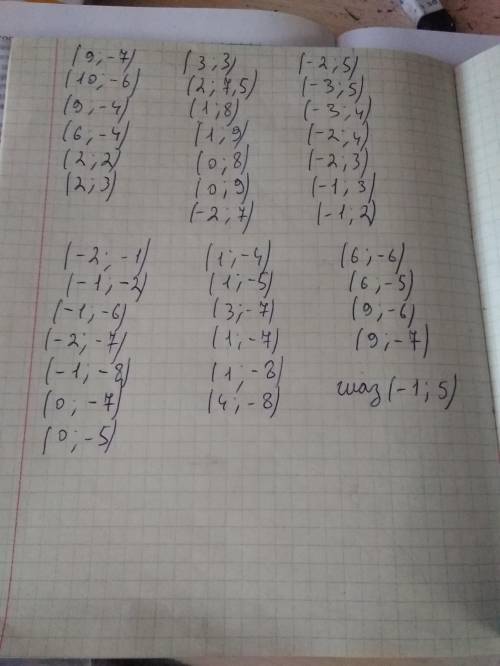 (9; -7) (3; 3) (-2; 5)
(10; -6) (2; 7,5) (-3; 5)
(9; -4) (1; 8) (-3; 4)
(6; -4) (1; 9) (-2; 4)
(2; 2) (0; 8) (-2; 3)
(2; 3) (0; 9) (-1; 3)
(-2; 7) (-1; 2)
(-2; -1) (1; -4) (6; -6)
(-1; -2) (1; -5) (6; -5)
(-1; -6) (3; -7) (9; -6)
(-2; -7) (1; -7) (9; -7)
(-1; -8) (1; -8) глаз (-1; 5)
(0; -7) (4; -8)
(0; -5)